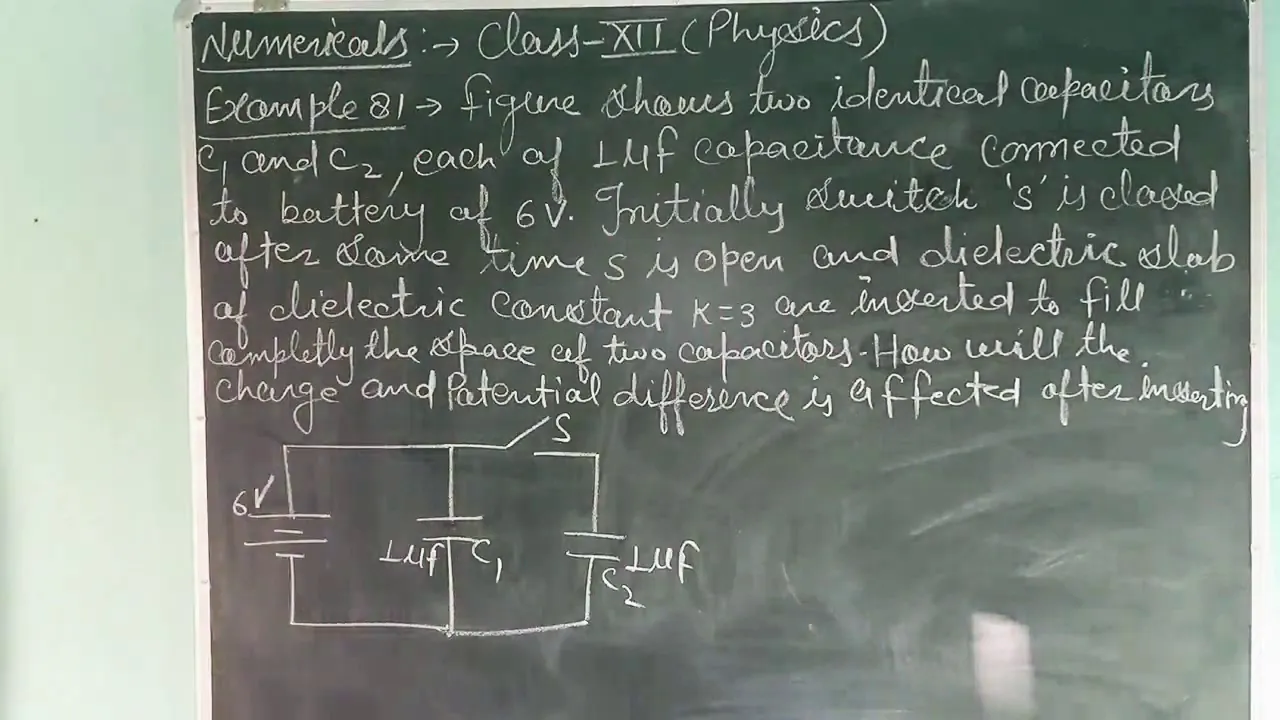 Numericals:→ Class-XII (Physics)
Example 81 → figure shows two identical capacitors
C1 and C2, each of 1μf capacitance connected
to battery of 6V. Initially switch 's' is closed
after some time s is open and dielectric slab
of dielectric constant K=3 are inserted to fill
completly the space of two capacitors. How will the
charge and Potential difference is affected after inserting
S
6V
1μf C1
1μf
C2